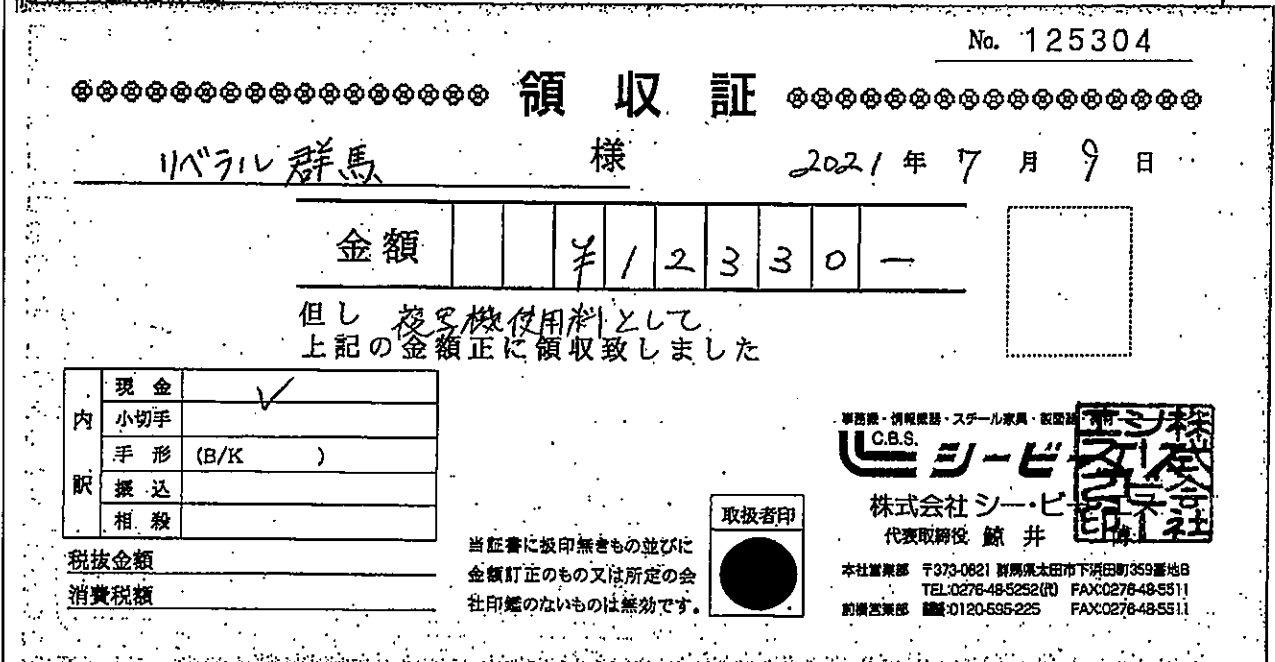 No. 125304
領収証
リベラル群馬 様 2021年7月9日
金額 ¥12330-
但し 複写機使用料として
上記の金額正に領収致しました
内訳
現金 ✓
小切手
手形 (B/K )
振込
相殺
税抜金額
消費税額
当証書に扱印無きもの並びに
金額訂正のもの又は所定の会
社印鑑のないものは無効です。
取扱者印
事務機・情報機器・スチール家具・製図器
C.B.S.
シービー
株式会社 シー・ビー
代表取締役 鯨井
本社営業部 〒373-0821 群馬県太田市下浜田町359番地8
TEL:0276-48-5252(代) FAX:0276-48-5511
前橋営業部 0120-595-225 FAX:0276-48-5511